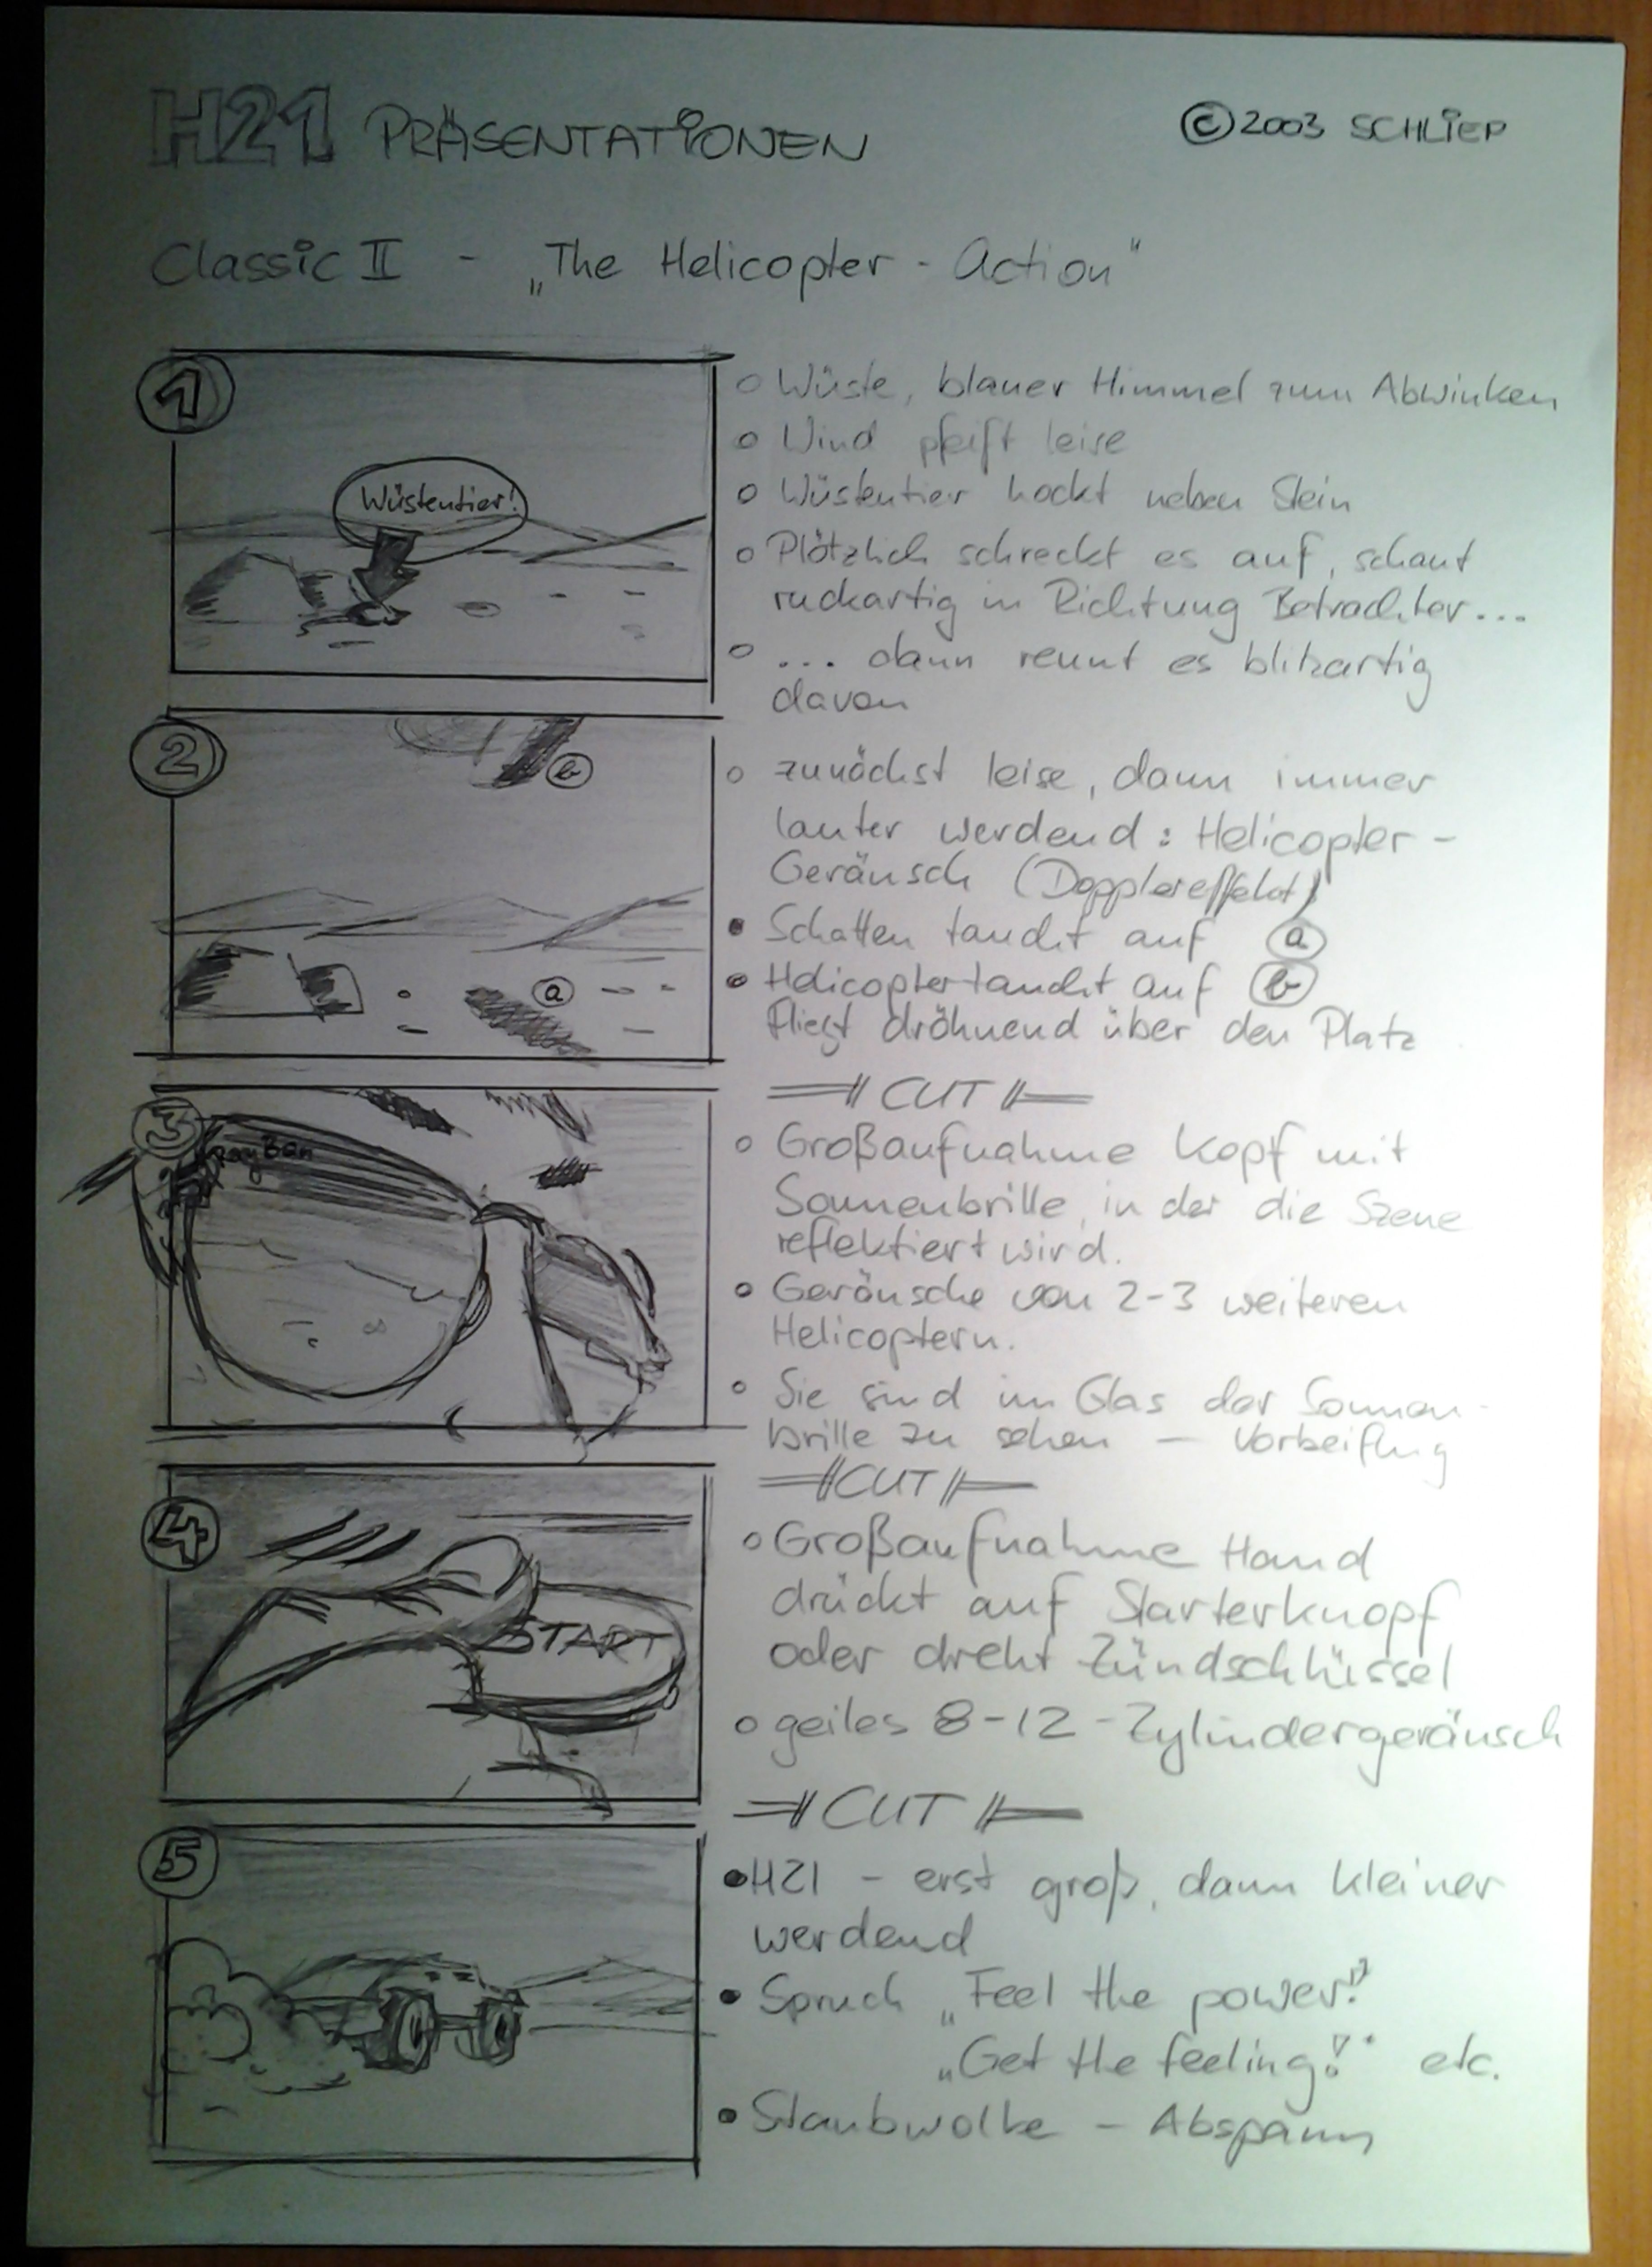 H21 PRÄSENTATIONEN
©2003 SCHLIEP
Classic II - „The Helicopter - Action"
1
Wüstentier!
o Wüste, blauer Himmel zum Abwinken
o Wind pfeift leise
o Wüstentier hockt neben Stein
o Plötzlich schreckt es auf, schaut
ruckartig in Richtung Betrachter...
o ... dann rennt es blitzartig
davon
2
b
a
o zunächst leise, dann immer
lauter werdend: Helicopter-
Geräusch (Dopplereffekt)
• Schatten taucht auf a
• Helicopter taucht auf b
fliegt dröhnend über den Platz
CUT
3
RayBan
o Großaufnahme Kopf mit
Sonnenbrille, in der die Szene
reflektiert wird.
o Geräusche von 2-3 weiteren
Helicoptern.
o Sie sind im Glas der Sonnen-
brille zu sehen — Vorbeiflug
CUT
4
START
o Großaufnahme Hand
drückt auf Starterknopf
oder dreht Zündschlüssel
o geiles 8-12-Zylindergeräusch
CUT
5
• H21 - erst groß, dann kleiner
werdend
• Spruch „Feel the power!"
„Get the feeling!" etc.
• Staubwolke - Abspann